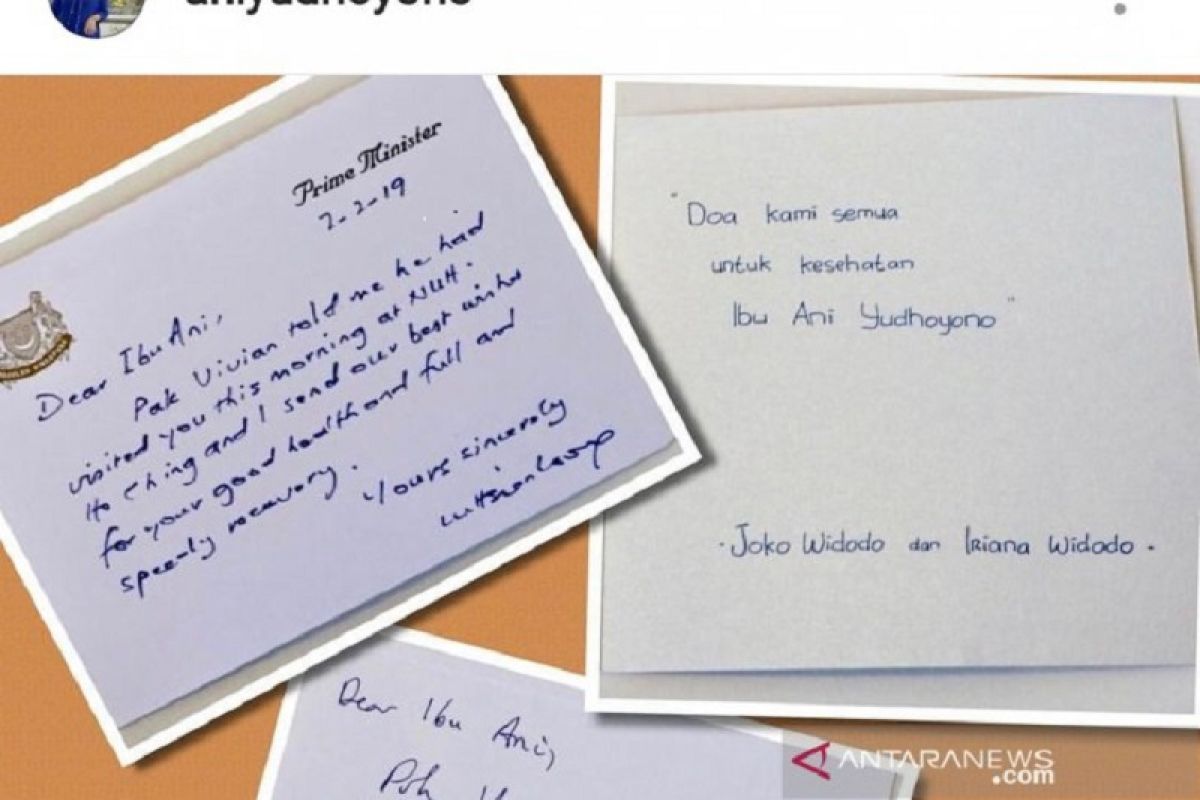 aniyudhoyono
Prime Minister
2-2-19
Dear Ibu Ani,
Pak Vivian told me he had
visited you this morning at NUH.
Ho Ching and I send our best wishes
for your good health and full and
speedy recovery.
Yours sincerely
"Doa kami semua
untuk kesehatan
Ibu Ani Yudhoyono"
. Joko Widodo dan Iriana Widodo .
Dear Ibu Ani,
ANTARANEWS
.com